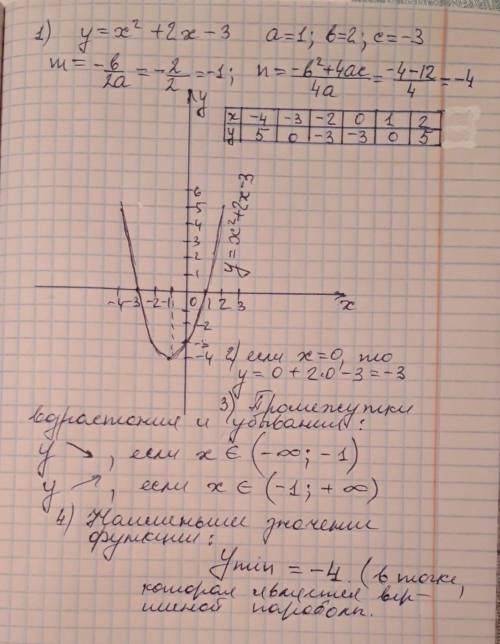 1) y = x² + 2x - 3   a=1; b=2; c=-3
m = -b/2a = -2/2 = -1;   n = -b²+4ac/4a = -4-12/4 = -4
y
x -4 -3 -2 0 1 2
y 5 0 -3 -3 0 5
6
5
4
3
2
1
y = x²+2x-3
-4 -3 -2 -1 0 1 2 3 x
-2
-3
-4
2) если x=0, то
y = 0 + 2·0 - 3 = -3
3) Промежутки
возрастания и убывания:
y ↘, если x ∈ (-∞; -1)
y ↗, если x ∈ (-1; +∞)
4) Наименьшее значение
функции:
ymin = -4. (в точке,
которая является вер-
шиной параболы.